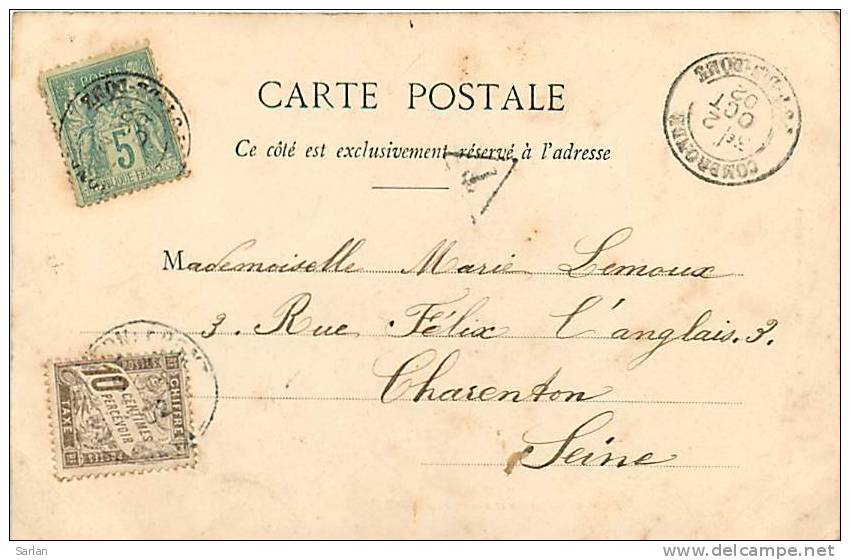 CARTE POSTALE
Ce côté est exclusivement réservé à l'adresse
Mademoiselle Marie Lemoux
3. Rue Félix L'anglais. 3.
Charenton
Seine
POSTE
5
COMBRONDE
PUY-DE-DOME
2
OCT
02
POSTES
10
CENTIMES
PERCEVOIR
CHIFFRE
TAXE
T
© Sarlan
www.delcampe.net